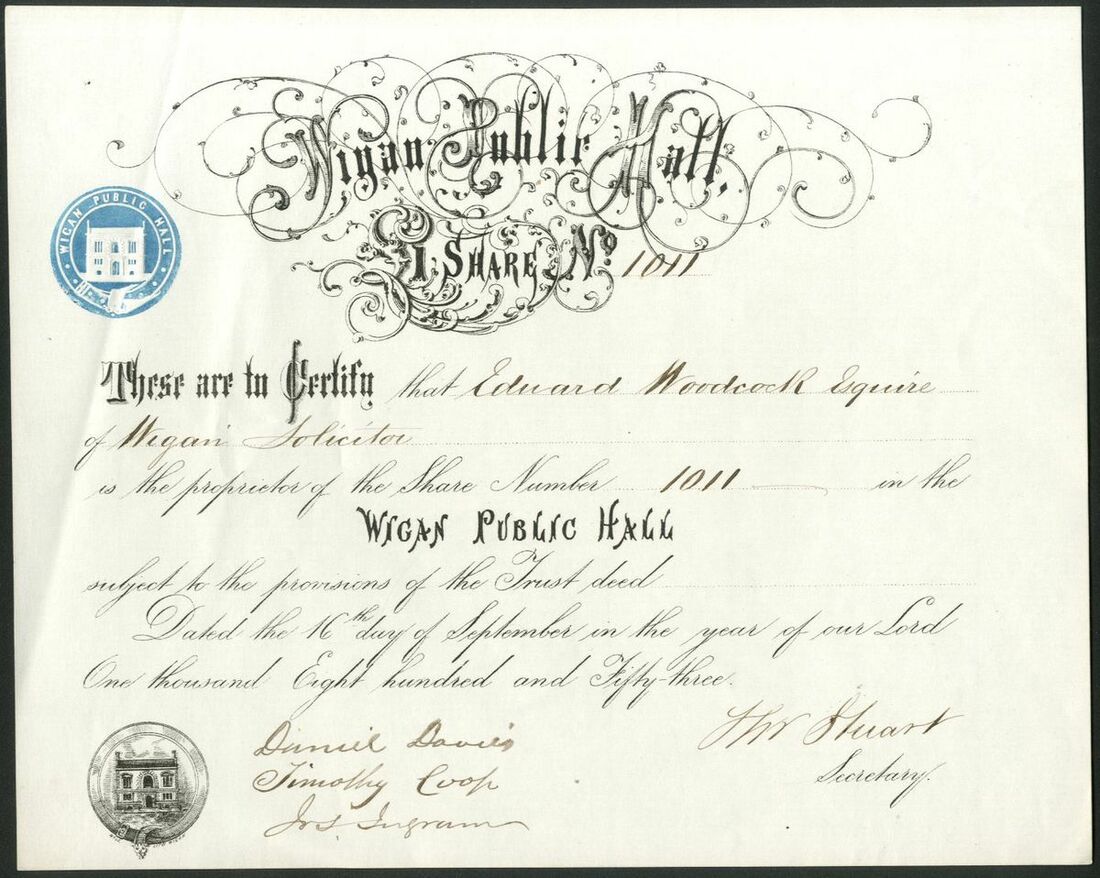 Wigan Public Hall.
WIGAN PUBLIC HALL
1 SHARE No 1011
These are to Certify that Edward Woodcock Esquire
of Wigan Solicitor
is the proprietor of the Share Number 1011 in the
WIGAN PUBLIC HALL
subject to the provisions of the Trust deed
Dated the 16th day of September in the year of our Lord
One thousand Eight hundred and Fifty-three.
Stuart
Secretary.
Daniel Davies
Timothy Coop
Ingram